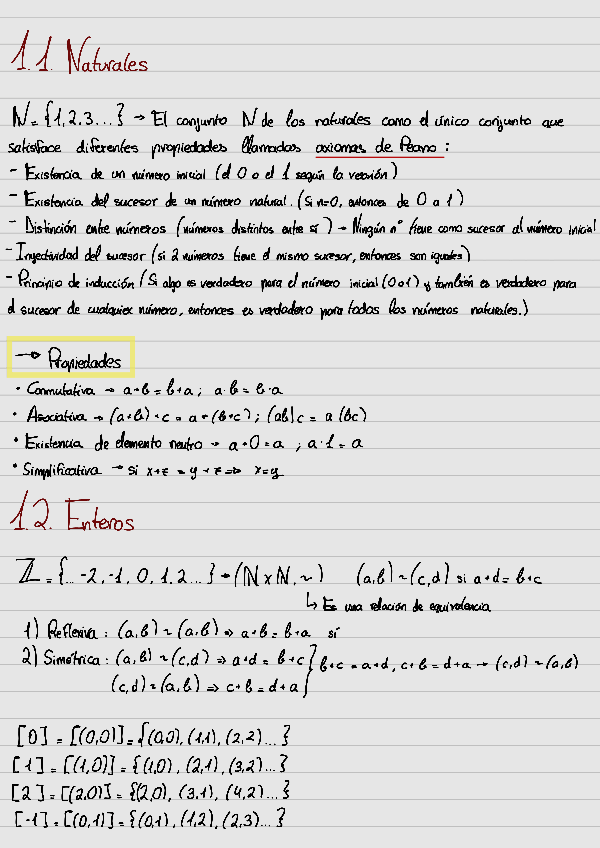 1.1. Naturales
ℕ = {1,2,3...} → El conjunto ℕ de los naturales como el único conjunto que
satisface diferentes propiedades llamadas axiomas de Peano:
- Existencia de un número inicial (el 0 o el 1 según la versión)
- Existencia del sucesor de un número natural. (Si n=0, entonces de 0 a 1)
- Distinción entre números (números distintos entre sí) → Ningún nº tiene como sucesor al número inicial
- Inyectividad del sucesor (si 2 números tiene el mismo sucesor, entonces son iguales)
- Principio de inducción (Si algo es verdadero para el número inicial (0 o 1) y también es verdadero para
el sucesor de cualquier número, entonces es verdadero para todos los números naturales.)
→ Propiedades
• Conmutativa → a+b = b+a ; a·b = b·a
• Asociativa → (a+b)+c = a+(b+c) ; (ab)c = a(bc)
• Existencia de elemento neutro → a+0=a ; a·1=a
• Simplificativa → si x+z = y+z ⇒ x=y
1.2. Enteros
ℤ = {... -2, -1, 0, 1, 2 ...} → (ℕ×ℕ, ~) (a,b) ~ (c,d) si a+d = b+c
↳ Es una relación de equivalencia
1) Reflexiva : (a,b) ~ (a,b) ⇒ a+b = b+a sí
2) Simétrica : (a,b) ~ (c,d) ⇒ a+d = b+c } b+c = a+d, c+b = d+a → (c,d) ~ (a,b)
(c,d) ~ (a,b) ⇒ c+b = d+a
[0] = [(0,0)] = {(0,0), (1,1), (2,2)...}
[1] = [(1,0)] = {(1,0), (2,1), (3,2)...}
[2] = [(2,0)] = {(2,0), (3,1), (4,2)...}
[-1] = [(0,1)] = {(0,1), (1,2), (2,3)...}